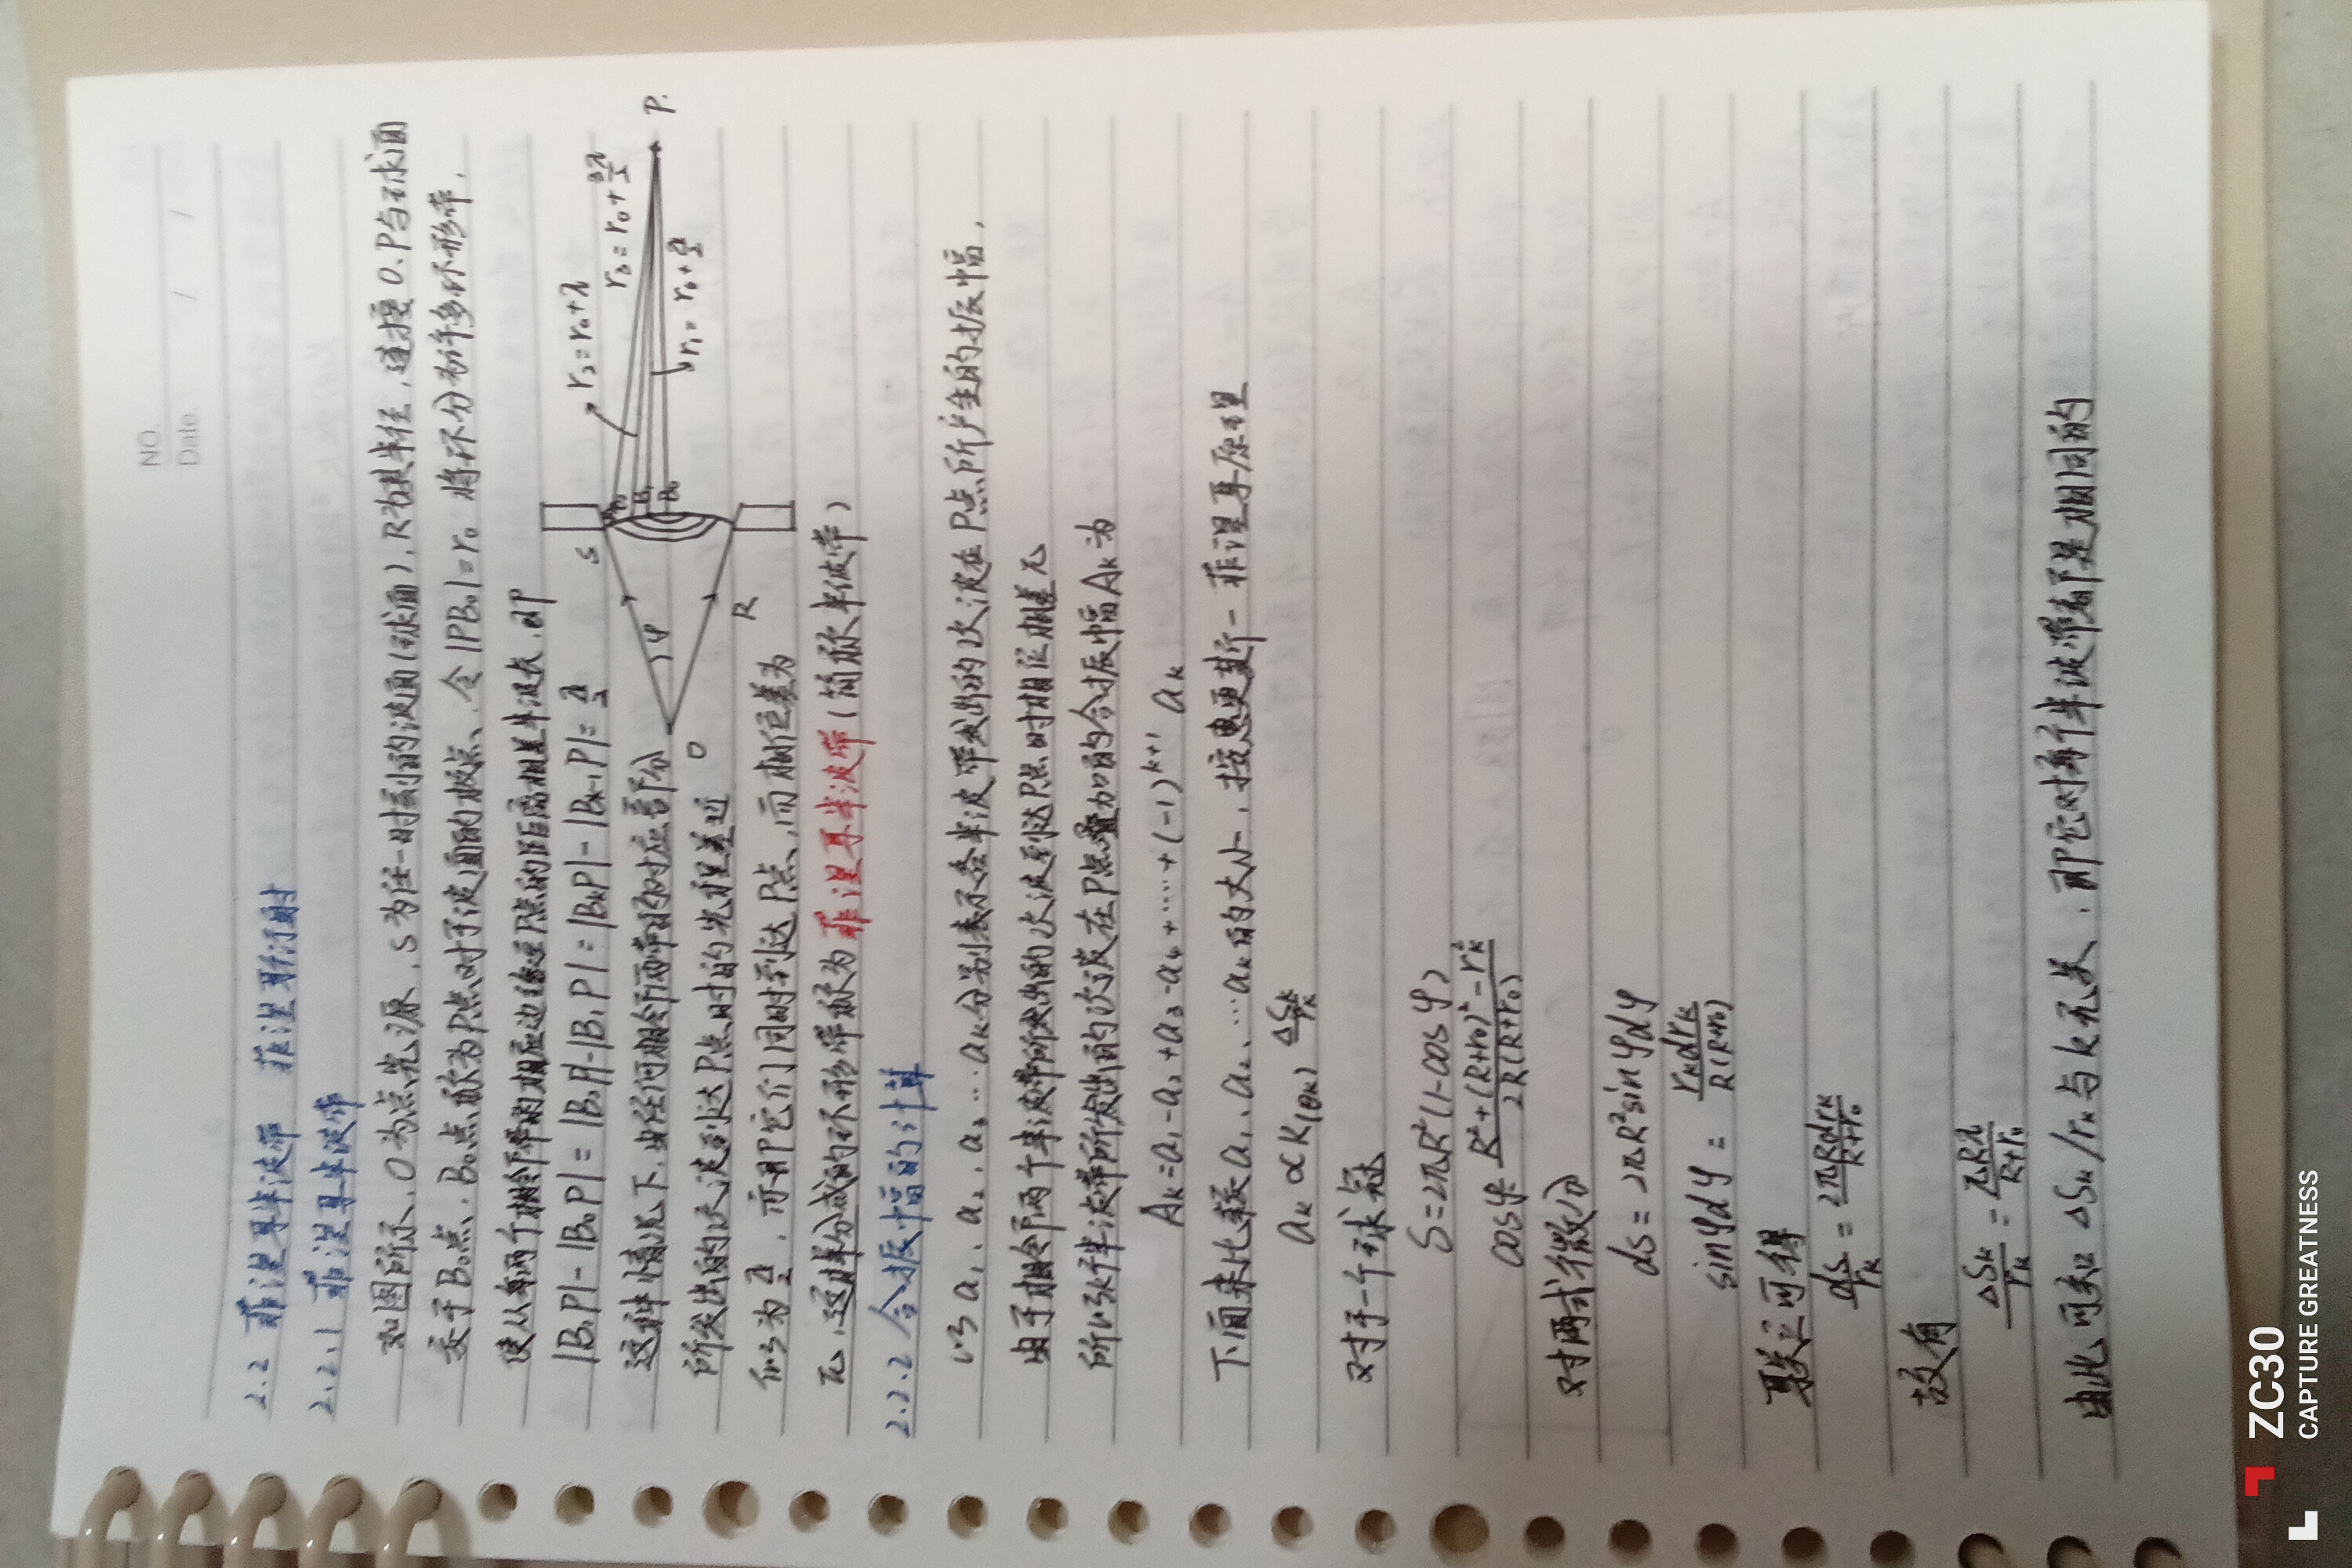 NO.
Date / /
2.2 菲涅耳半波带 菲涅耳衍射
2.2.1 菲涅耳半波带
如图所示,O为点光源,S为任一时刻的波面(球面),R为其半径,连接O、P与球面
交于B₀点,B₀点称为P点对于波面的极点,令|PB₀|=r₀ 将环分为许多环形带,
使从每两个相邻带的相应边缘至P点的距离相差半波长,即
|B₁P|-|B₀P|=|B₂P|-|B₁P|=|BₖP|-|Bₖ₋₁P|=λ/2
这种情况下,由任何相邻两带的对应部分
所发出的次波到达P点时的光程差为
λ/2,亦即它们同时到达P点,而相位差为
π,这样分成的环形带称为菲涅耳半波带(简称半波带)
S
r₂=r₀+λ
r₃=r₀+3λ/2
r₁=r₀+λ/2
P.
B₁
B₀
φ
O
R
2.2.2 合振幅的计算
以a₁、a₂、a₃…aₖ分别表示各半波带发出的次波在P点所产生的振幅,
由于相邻两个半波带所发出的次波到达P点时相位相差π
所以k个半波带所发出的次波在P点叠加的合振幅Aₖ为
Aₖ=a₁-a₂+a₃-a₄+……+(-1)ᵏ⁺¹aₖ
下面来比较a₁、a₂、…aₖ的大小,按惠更斯-菲涅耳原理
aₖ∝K(θₖ) ΔSₖ/rₖ
对于一个球冠
S=2πR²(1-cosφ)
cosφ=(R²+(R+r₀)²-rₖ²)/(2R(R+r₀))
对两式微分
ds=2πR²sinφdφ
sinφdφ=rₖdrₖ/(R(R+r₀))
联立可得
ds/rₖ=2πRdrₖ/(R+r₀)
故有
ΔSₖ/rₖ=πRλ/(R+r₀)
由此可知ΔSₖ/rₖ与k无关,即它对每个半波带都是相同的
ZC30
CAPTURE GREATNESS